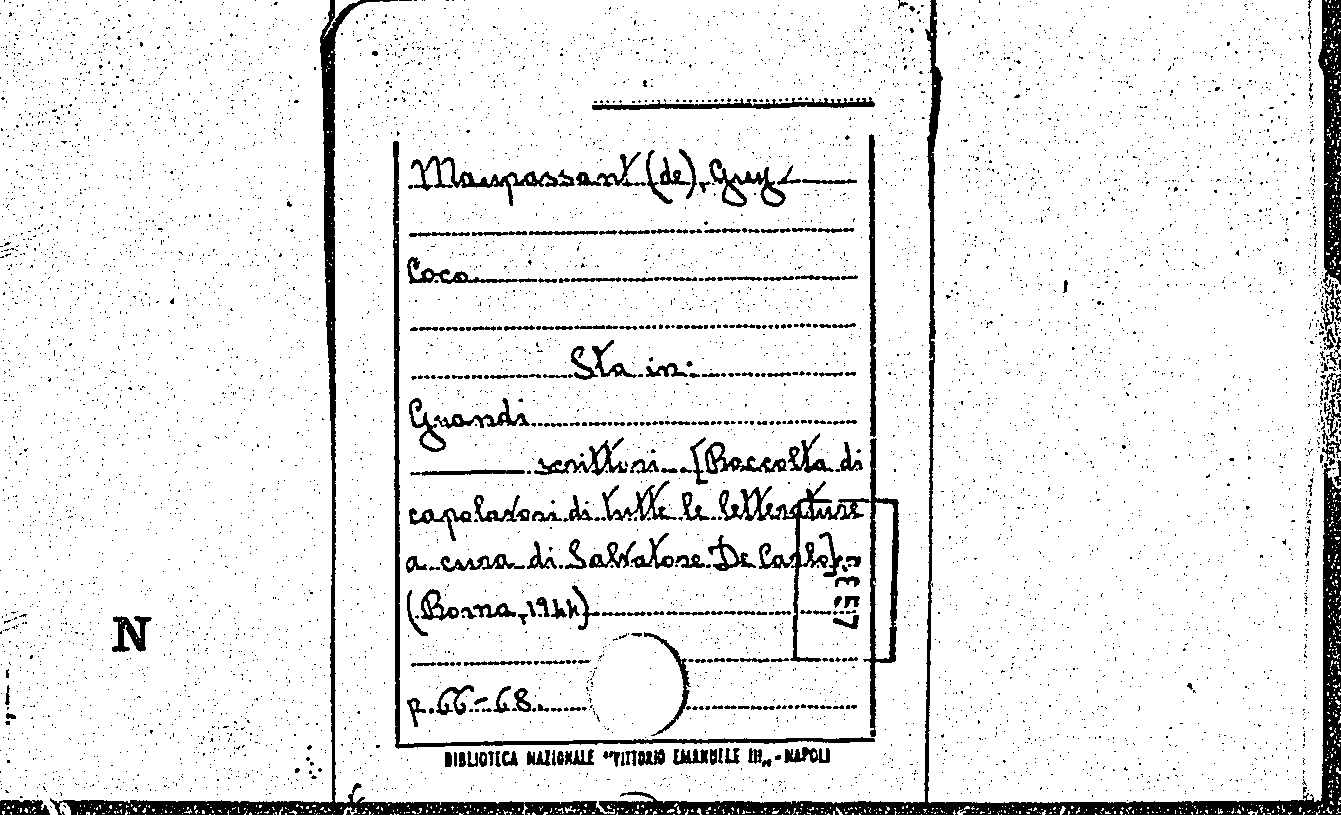 Maupassant (de), Guy
Coco
Sta in:
Grandi
scrittori [Raccolta di
capolavori di tutte le letterature
a cura di Salvatore De Carlo]
(Roma, 1944)
p. 66-68.
BIBLIOTECA NAZIONALE "VITTORIO EMANUELE III„ - NAPOLI
N